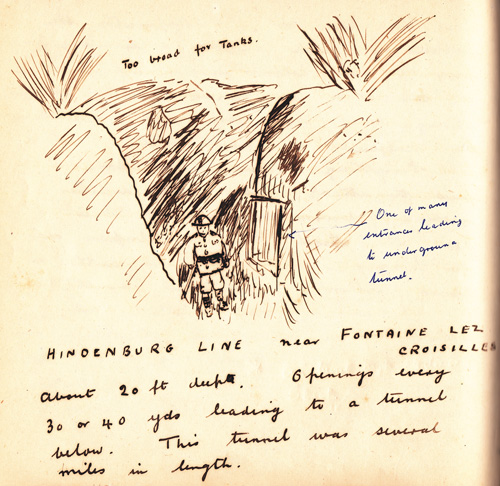 Too broad for Tanks.
One of many
entrances leading
to underground
tunnel.
HINDENBURG LINE near FONTAINE LEZ
CROISILLES
About 20 ft deep. Openings every
30 or 40 yds leading to a tunnel
below. This tunnel was several
miles in length.